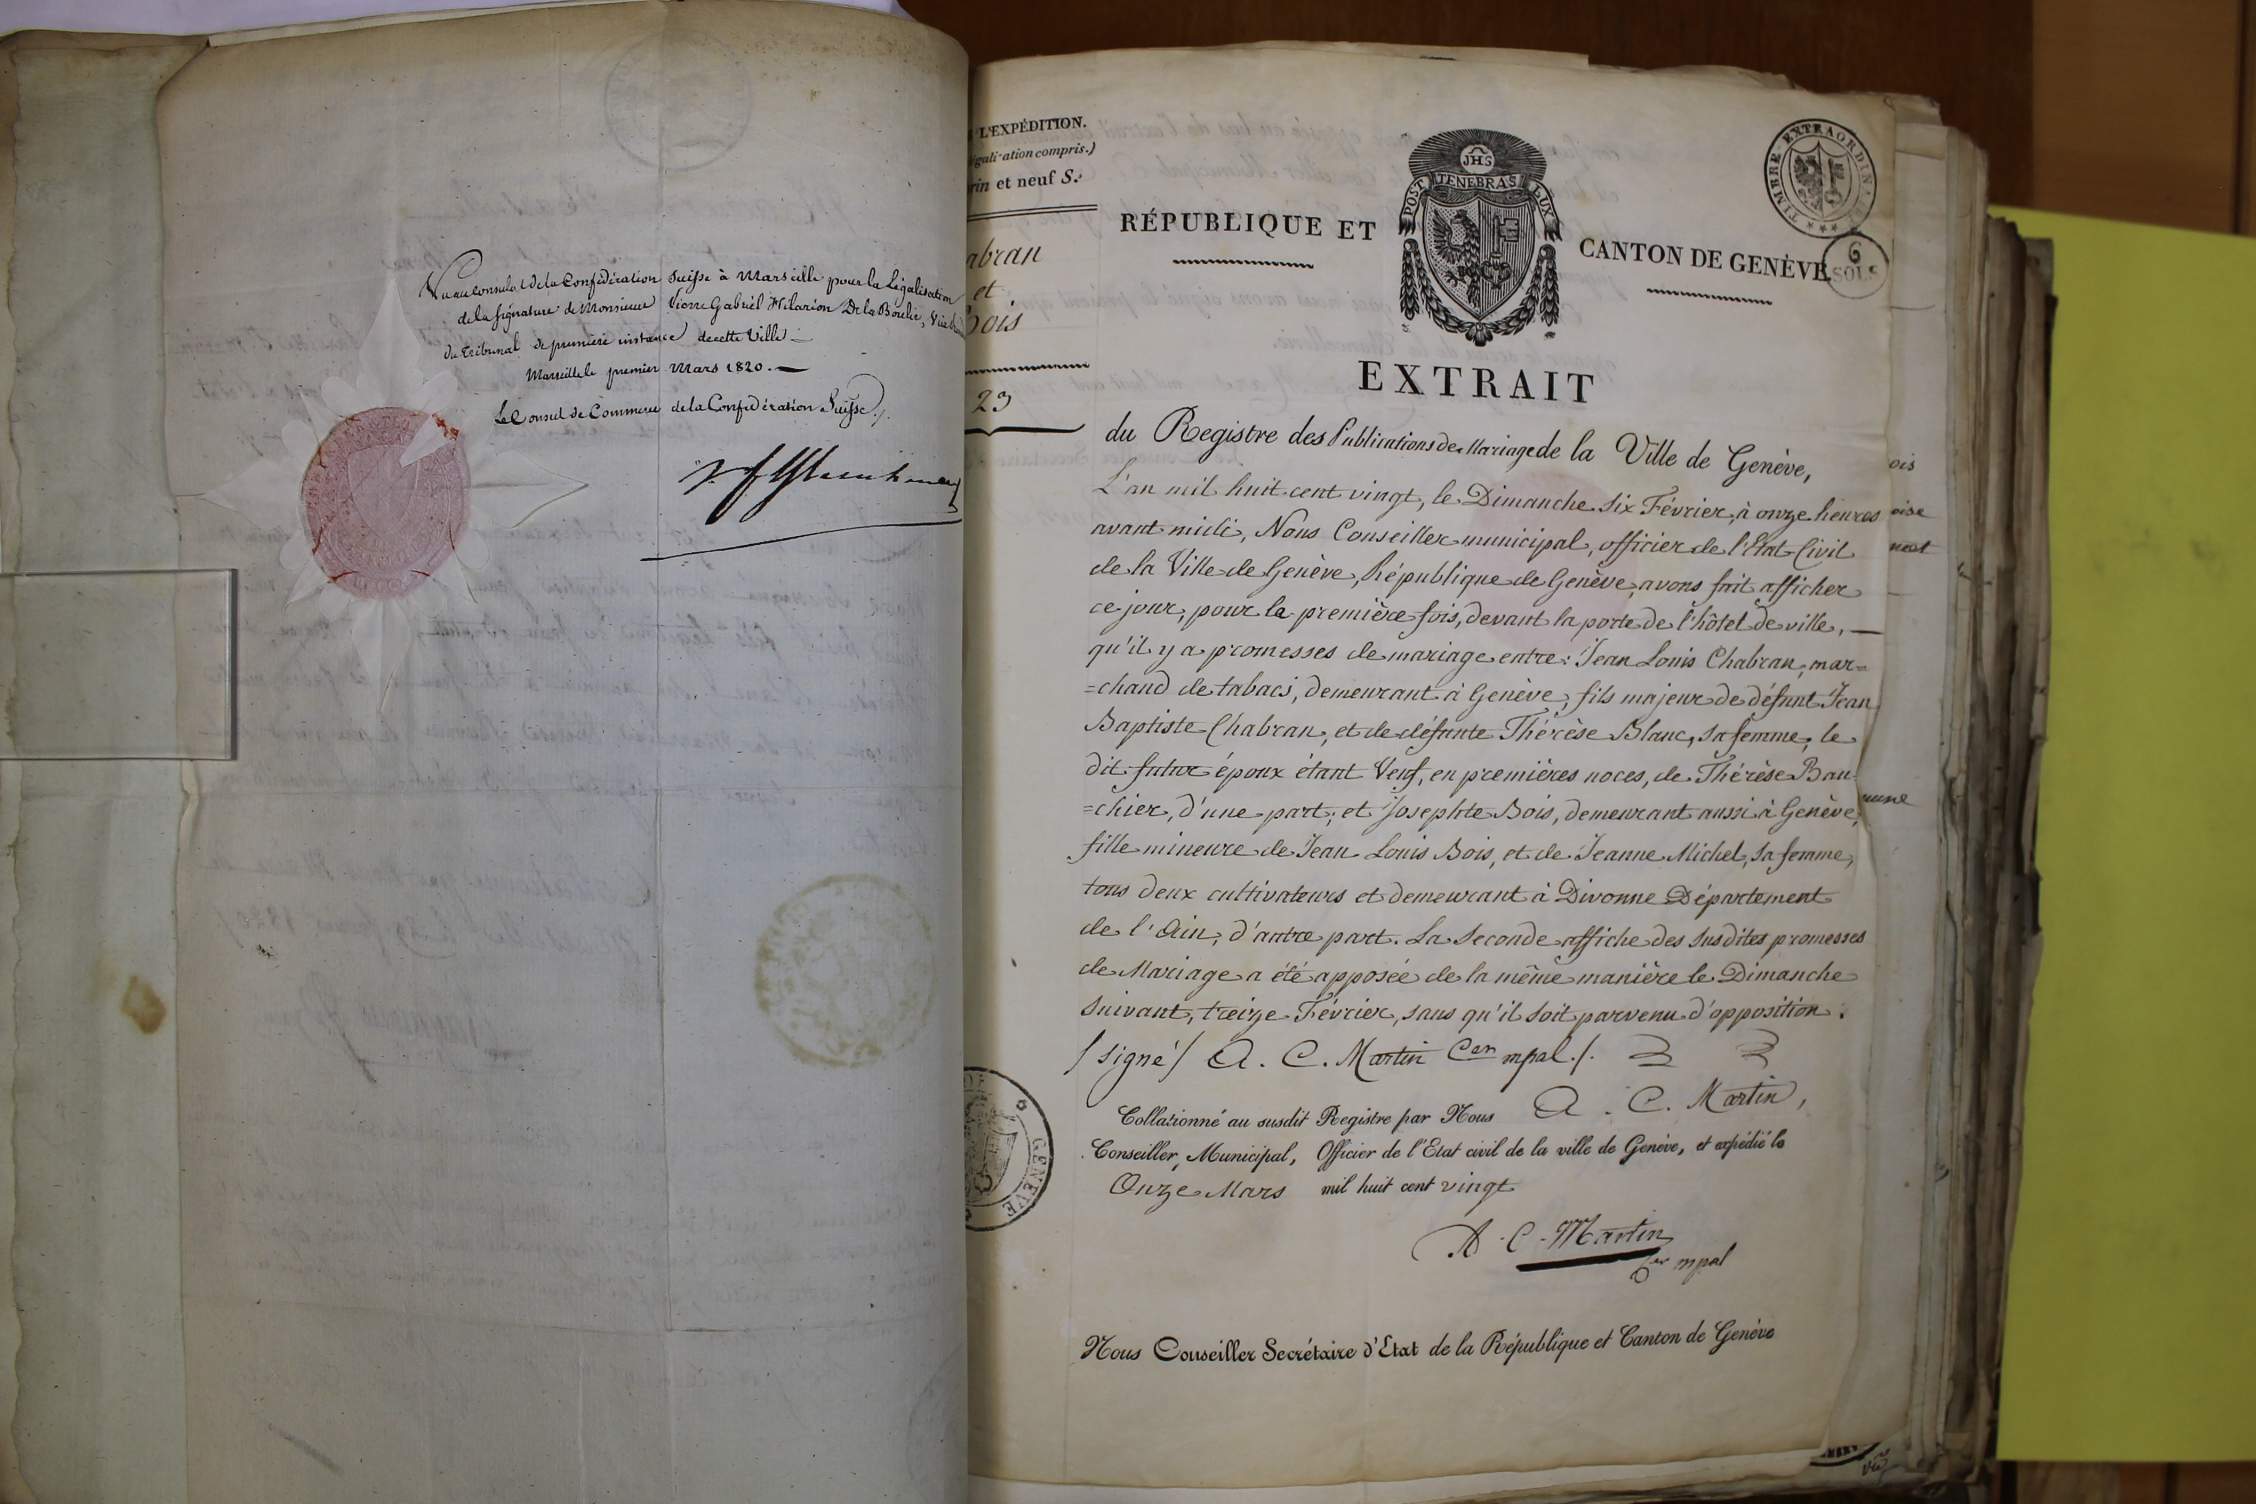 Vu au Consulat de la Confédération Suisse à Marseille pour la Légalisation
de la signature de Monsieur Pierre Gabriel Hilarion De la Boulie, Vice
du Tribunal de premiere instance de cette Ville
Marseille le premier Mars 1820.
Le Consul de Commerce de la Confédération Suisse
L'EXPÉDITION.
gali-ation compris.)
rin et neuf S.s
abran
et
Bois
23
JHS
POST TENEBRAS LUX
RÉPUBLIQUE ET
CANTON DE GENÈVE
TIMBRE EXTRAORDIN
6
SOLS
EXTRAIT
du Registre des Publications de Mariage de la Ville de Genève,
L'an mil huit cent vingt, le Dimanche six Février, à onze heures
avant midi, Nous Conseiller municipal, officier de l'Etat Civil
de la Ville de Genève, République de Genève, avons fait afficher
ce jour, pour la première fois, devant la porte de l'hôtel de ville, —
qu'il y a promesses de mariage entre: Jean Louis Chabran, mar=
=chand de tabacs, demeurant à Genève, fils majeur de défunt Jean
Baptiste Chabran, et de défunte Thérèse Blanc, sa femme, le
dit futur époux étant Veuf, en premières noces, de Thérèse Bau=
=chier, d'une part; et Josephte Bois, demeurant aussi à Genève,
fille mineure de Jean Louis Bois, et de Jeanne Michel, sa femme,
tous deux cultivateurs et demeurant à Divonne Département
de l'Ain, d'autre part. La seconde affiche des susdites promesses
de Mariage a été apposée de la même manière le Dimanche
suivant, treize Février, sans qu'il soit parvenu d'opposition.
/signé/ A. C. Martin Cer mpal./.
Collationné au susdit Registre par Nous A. C. Martin,
Conseiller Municipal, Officier de l'Etat civil de la ville de Genève, et expédié le
Onze Mars mil huit cent vingt
A. C. Martin
Cer mpal
GENÈVE
Nous Conseiller Secrétaire d'Etat de la République et Canton de Genève
ois
oise